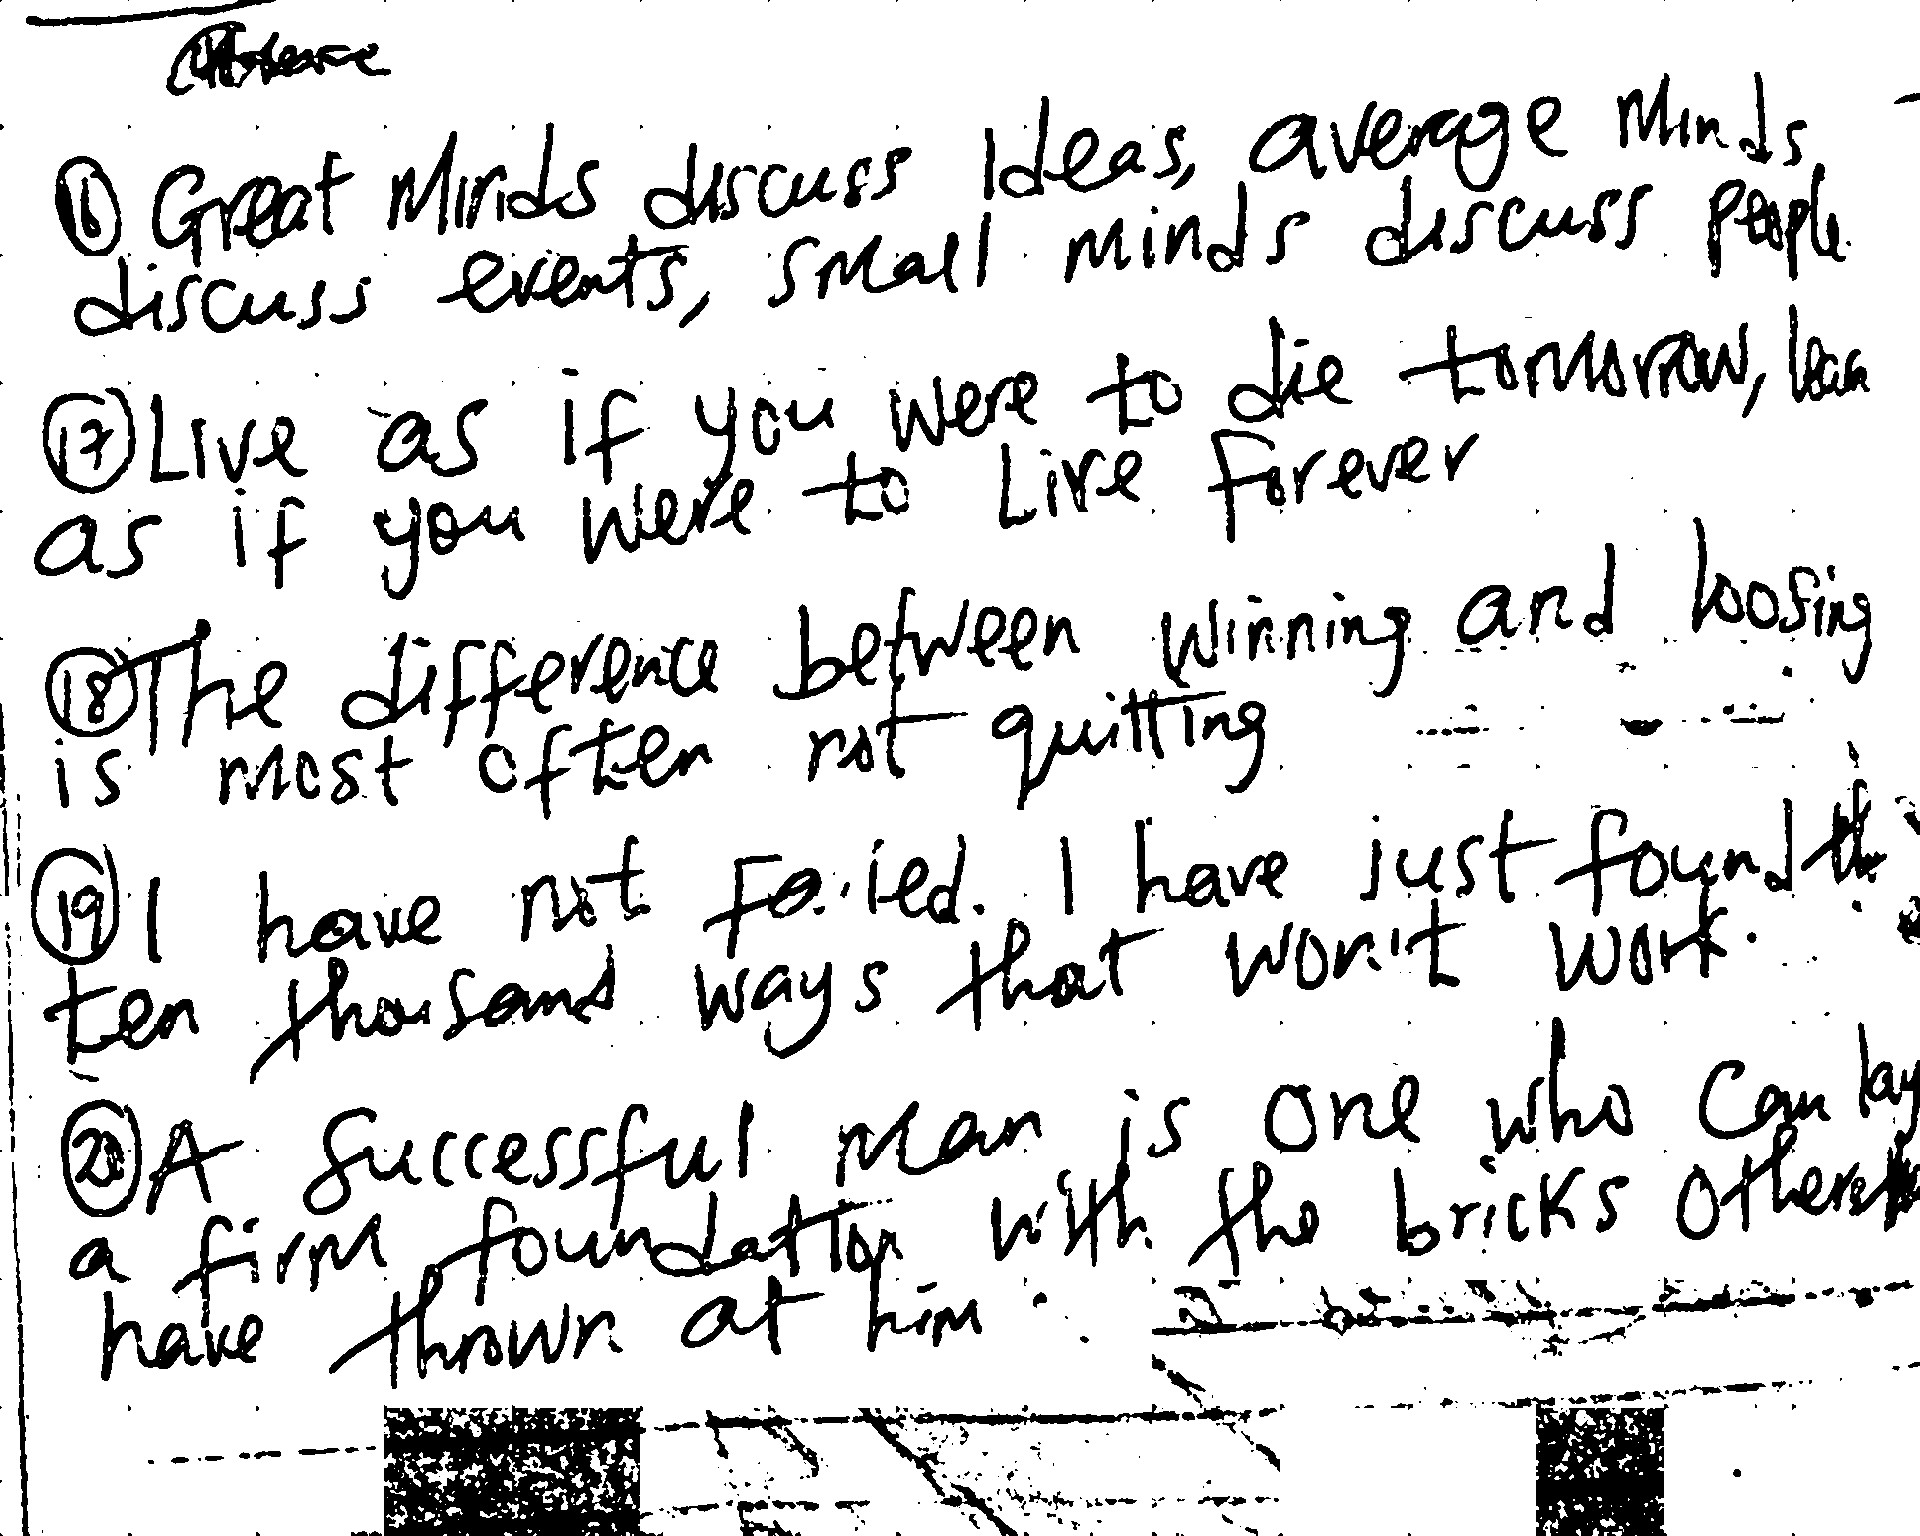 16 Great Minds discuss Ideas, average Minds
discuss events, small minds discuss people.
17 Live as if you were to die tomorrow,
as if you were to Live forever
18 The difference between winning and loosing
is most often not quitting
19 I have not Failed. I have just found
ten thousand ways that won't work.
20 A Successful man is One who Can lay
a firm foundation with the bricks Others
have thrown at him.